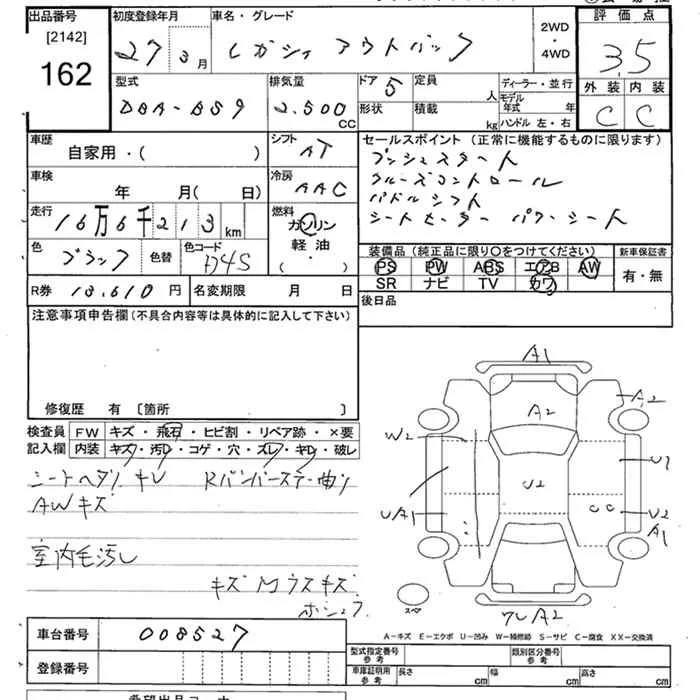 出品番号 初度登録年月 車名・グレード 2WD・4WD 評価点
[2142]
162
27 3月 レガシィ アウトバック 3.5
外装 内装
C C
型式 排気量 ドア 定員 ディーラー・並行
DBA-BS9 2.500CC 5 人 モデル年式 年
形状 積載 kg ハンドル 左・右
車歴 シフト セールスポイント (正常に機能するものに限ります)
自家用・( ) AT プッシュスタート
車検 冷房 クルーズコントロール
年 月(日) AAC パドルシフト
走行 16万6千213km 燃料 シートヒーター パワーシート
ガソリン
軽油
( ・ )
色 ブラック 色替 色コード D4S
装備品 (純正品に限り〇をつけてください) 新車保証書
PS PW ABS エアB AW 有・無
SR ナビ TV カワ
R券 13.610円 名変期限 月 日 後日品
注意事項申告欄 (不具合内容等は具体的に記入して下さい)
修復歴 有 〔箇所 〕
検査員 FW キズ・飛石・ヒビ割・リペア跡・×要
記入欄 内装 キズ・汚れ・コゲ・穴・ズレ・キレ・破レ
シートヘタリ キレ Rバンパーステー曲り
AWキズ
室内毛汚し
キズ Mラスキズ
A1
A2
A2
W2
U1
U2
UA1
CC U2
A1
スペア
ワレA2
A-キズ E-エクボ U-凹み W-補修跡 S-サビ C-腐食 XX-交換済
車台番号 008527
登録番号
型式指定番号 参考 類別区分番号 参考
車庫証明用 参考 長さ cm 幅 cm 高さ cm
希望出品コーナー